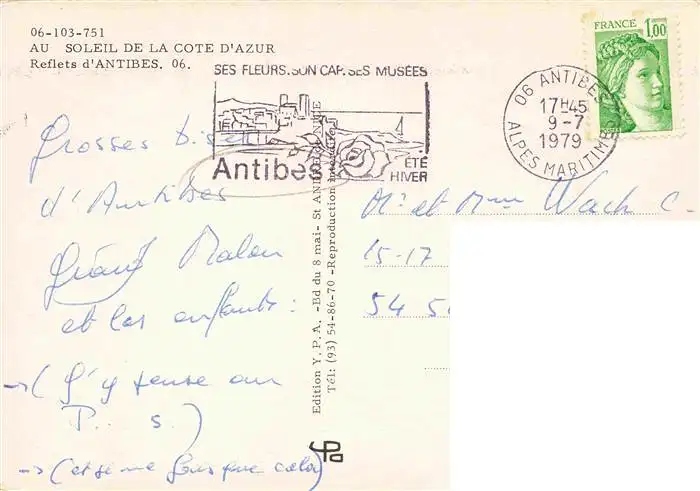 06-103-751
AU SOLEIL DE LA COTE D'AZUR
Reflets d'ANTIBES. 06.
SES FLEURS.SON CAP.SES MUSÉES
Antibes
ÉTÉ
HIVER
06 ANTIBES
17H45
9-7
1979
ALPES MARITIM
FRANCE 1,00
Grosses
d'Antibes
et les enfants :
→ (J'y pense au
P... s.)
Edition Y.P.A. -Bd du 8 mai- St AND NICE
Tél: (93) 54-86-70 -Reproduction interdite
Mr et Mme Wach C.
15-17
54 5